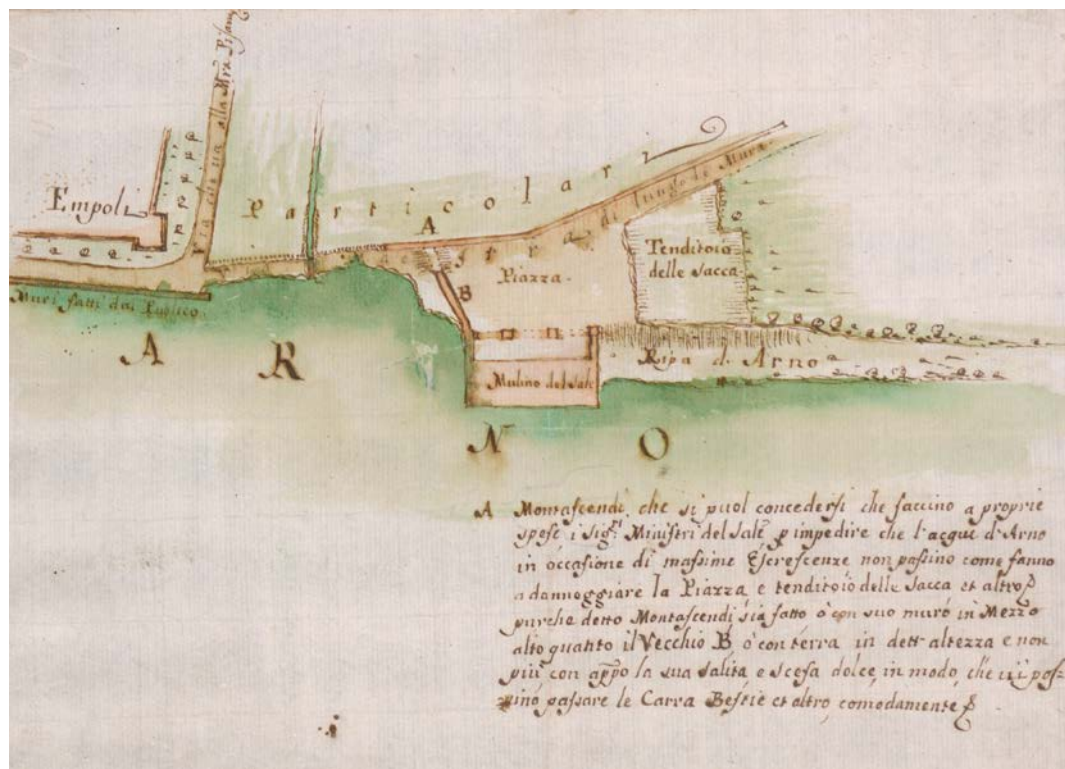 Via che va alla Mra Pisana
Empoli
Particolari
A
Maestra di lungo le Mura
Tenditoio
delle Sacca
Piazza
B
Muri fatti dai Publico
Mulino del Sale
Ripa d. Arno
A R N O
A Montascendi, che si puol concedersi che faccino a proprie
spese i Sig.ri Ministri del Sale p impedire che l'acque d'Arno
in occasione di massime Escrescenze non passino come fanno
a danneggiare la Piazza e tenditoio delle Sacca et altro
purche detto Montascendi sia fatto ò con suo muro in Mezzo
alto quanto il Vecchio B ò con terra in dett'altezza e non
più con appo la sua salita e scesa dolce, in modo, che vi pos-
sino passare le Carra Bestie et altro comodamente